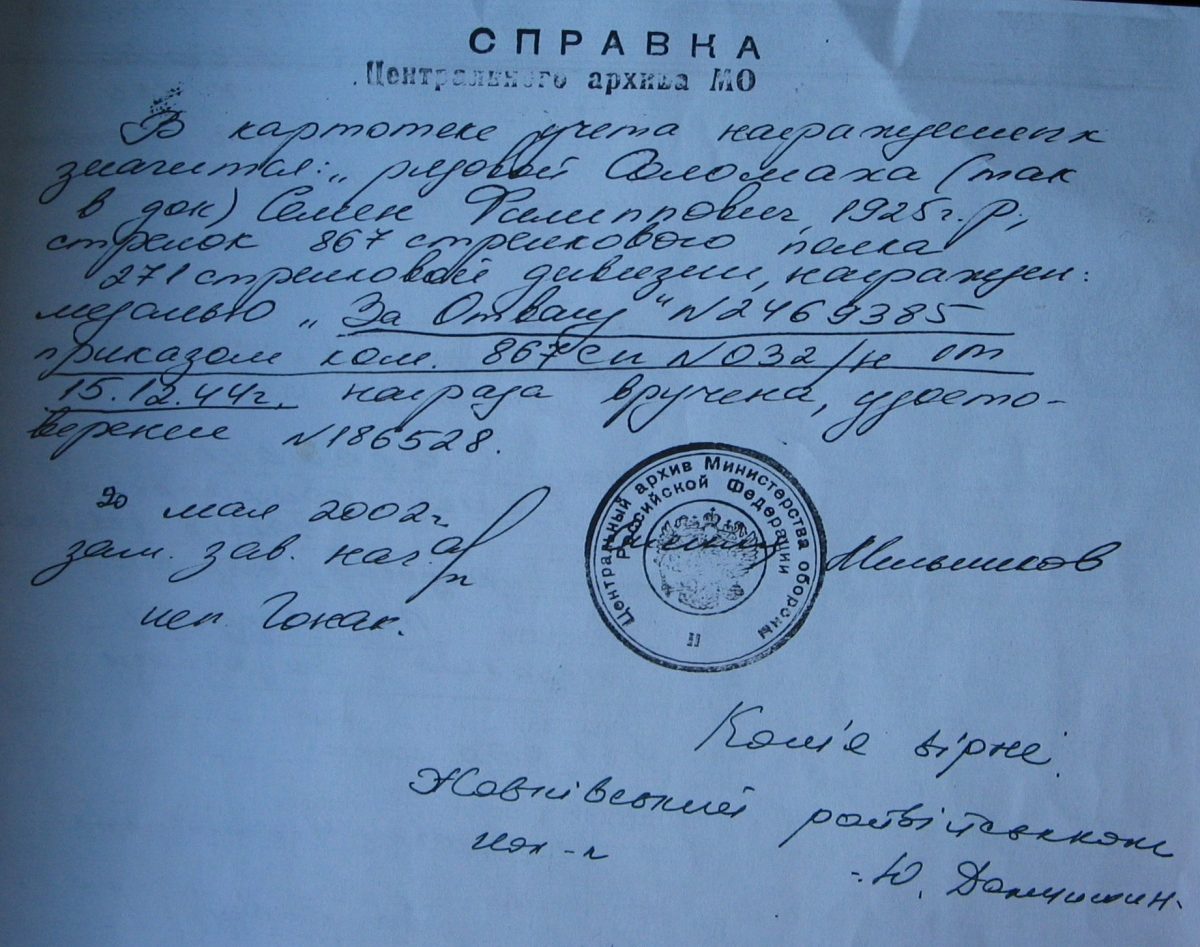 СПРАВКА
Центрального архива МО
В картотеке учета награжденных
значится: „рядовой Соломаха (так
в док) Семен Филиппович, 1925г.р.,
стрелок 867 стрелкового полка
271 стрелковой дивизии, награжден:
медалью „За Отвагу" N2469385
приказом ком. 867сп N032/н от
15.12.44г. награда вручена, удосто-
верение N186528.
20 мая 2002г.
зам. зав.
исп.
Центральный архив Министерства обороны
Российской Федерации
II
Мельников
Копія вірна
Жовківський райвійськком
Ю.